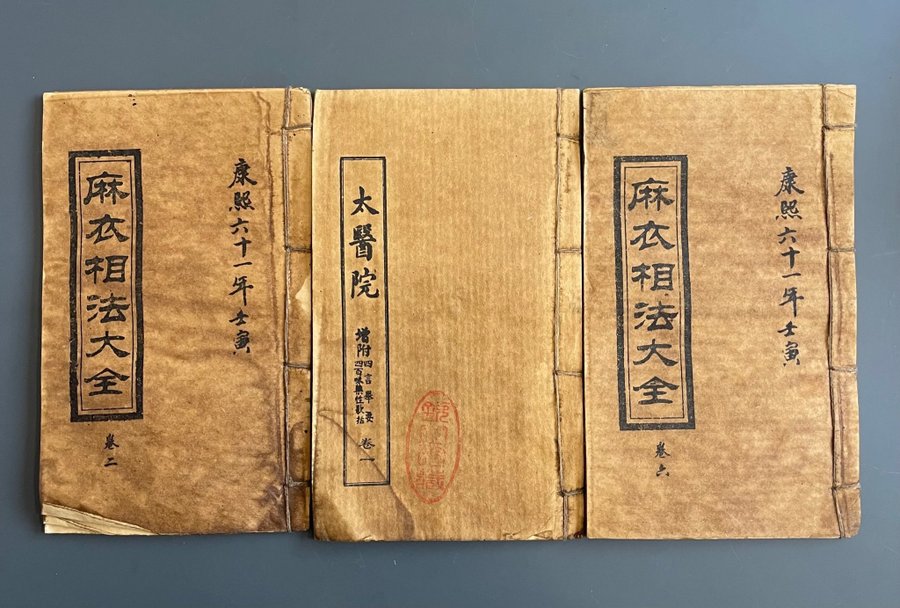 康熙六十一年壬寅
麻衣相法大全
卷二
太醫院
增附
四言舉要
四百味藥性歌括
卷一
康熙六十一年壬寅
麻衣相法大全
卷六